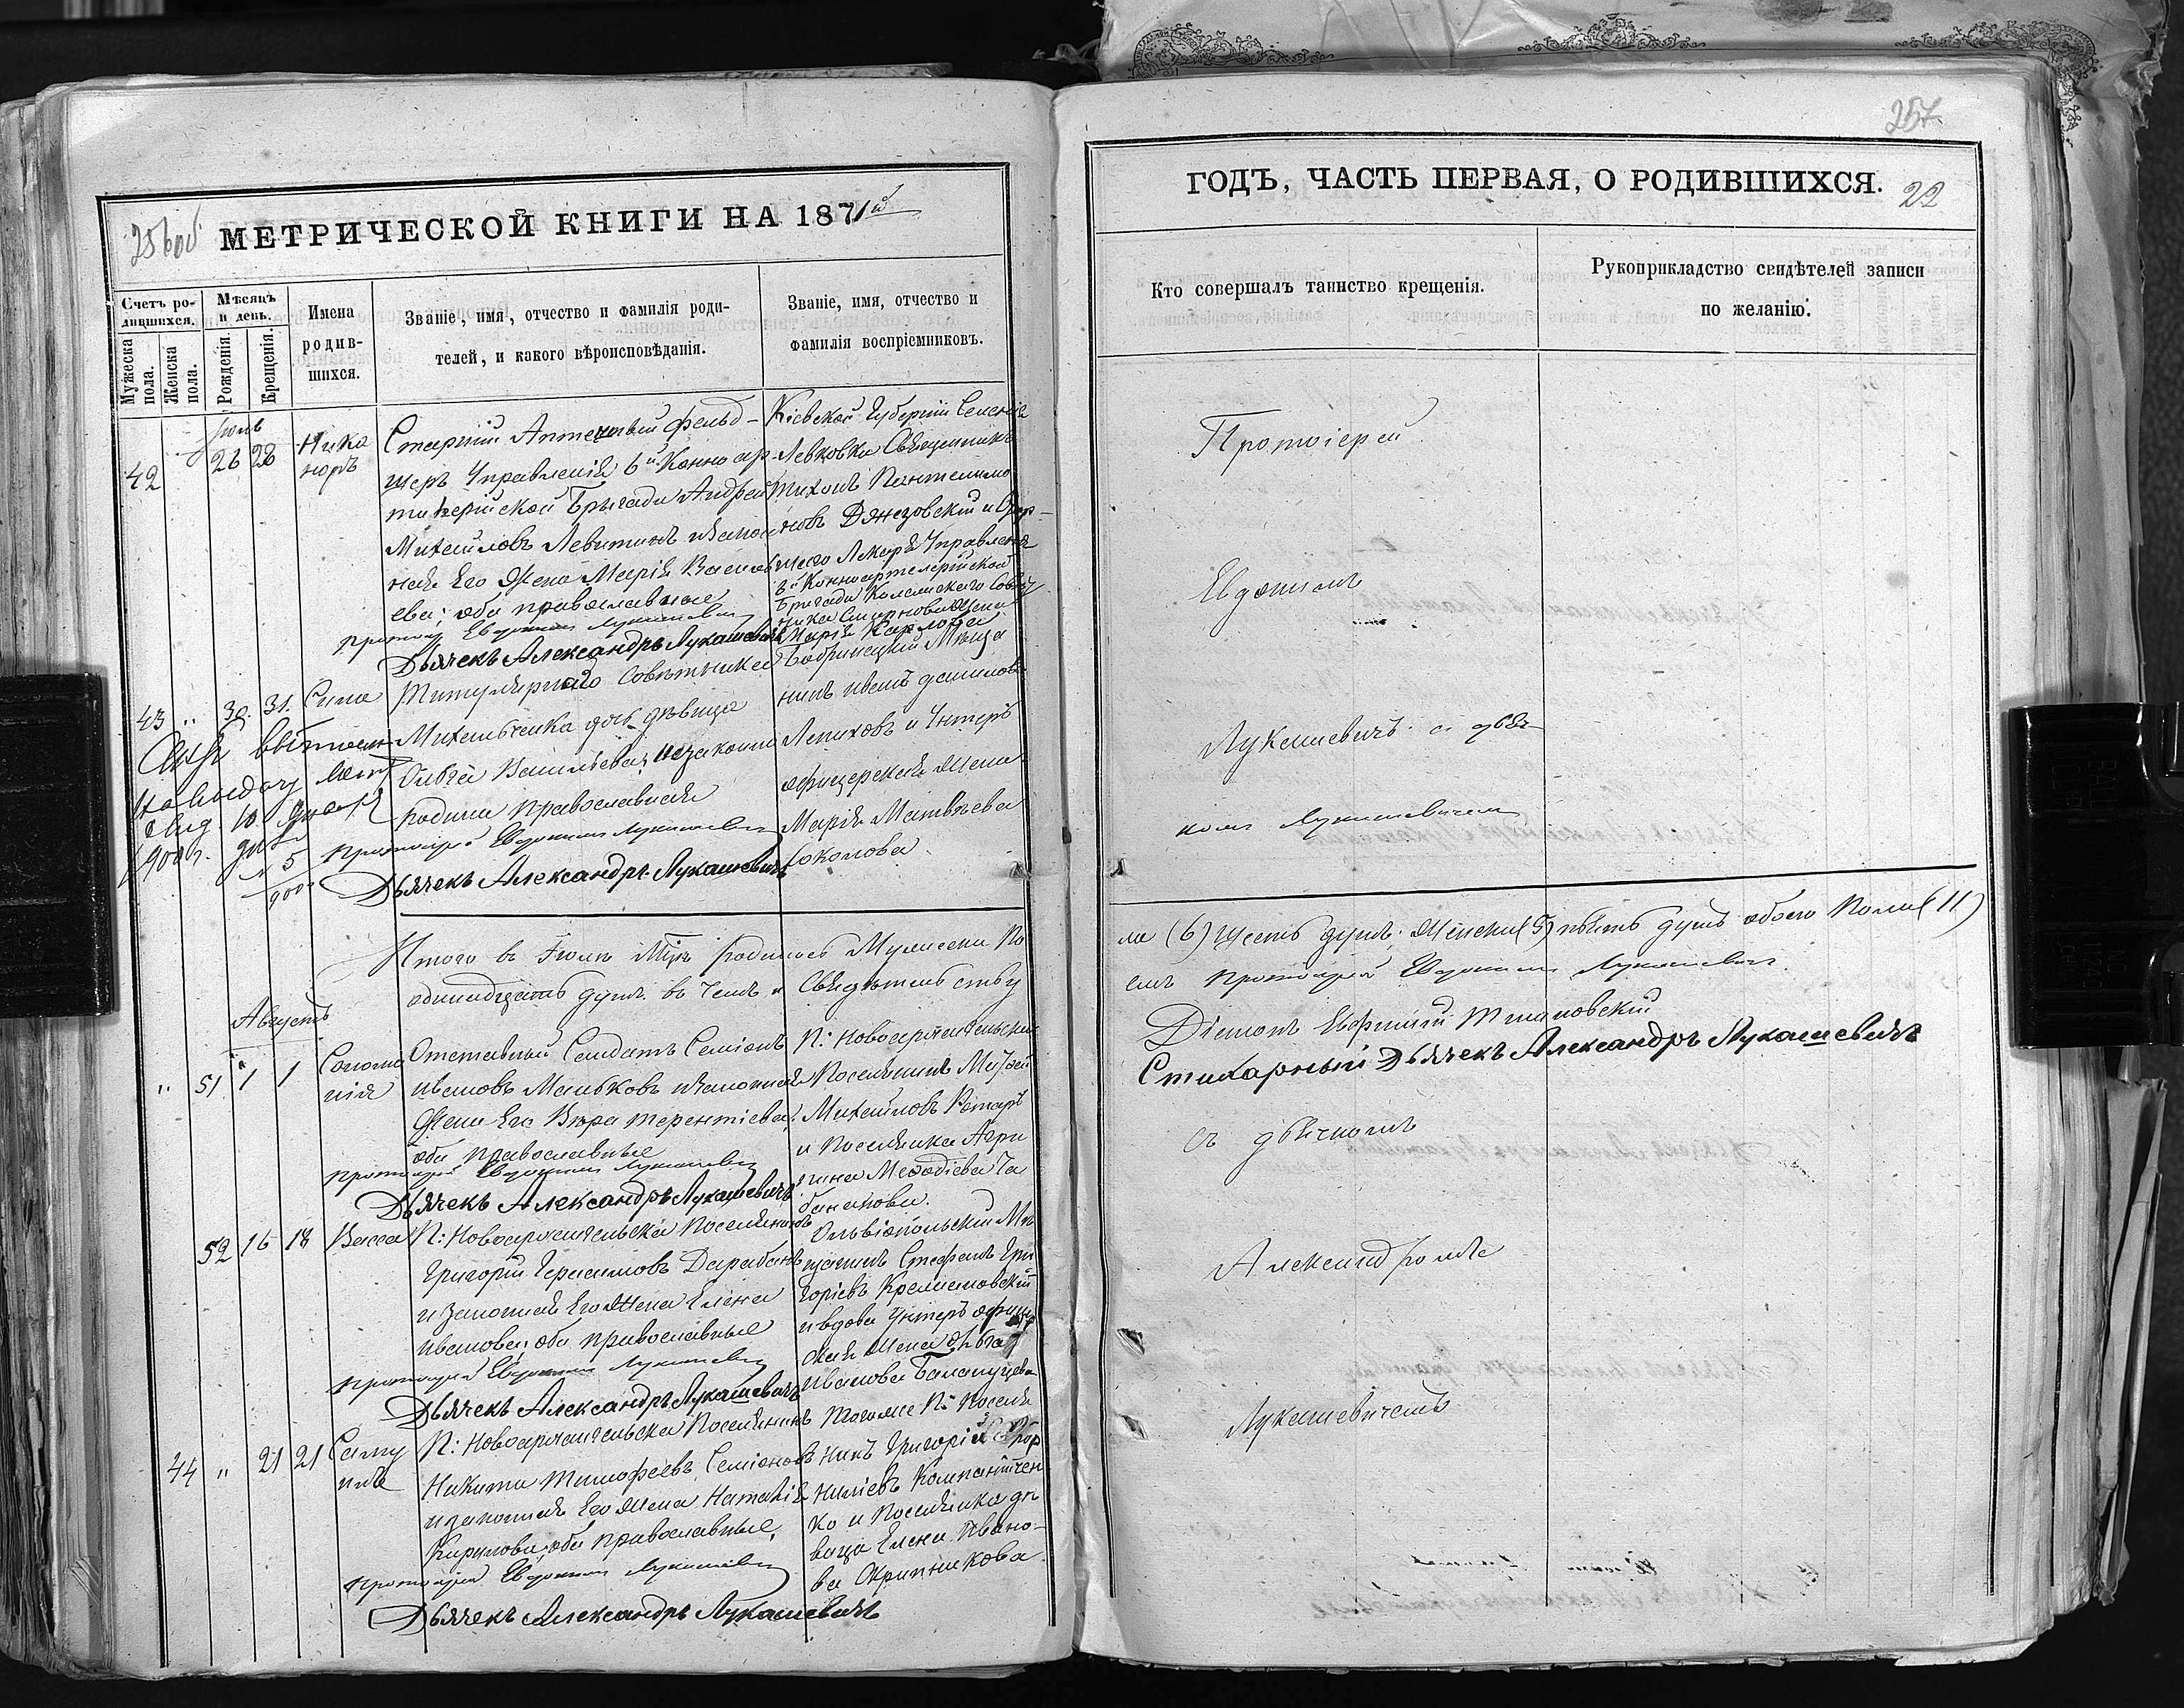 256об
МЕТРИЧЕСКОЙ КНИГИ НА 1871й
Счетъ ро-
дившихся.
Мѣсяцъ
и день.
Имена
родив-
шихся.
Званіе, имя, отчество и фамилія роди-
телей, и какого вѣроисповѣданія.
Званіе, имя, отчество и
фамилія воспріемниковъ.
Мужеска
пола.
Женска
пола.
Рожденія.
Крещенія.
Іюль
42
26 28
Ника
норъ
Старшій Аптечный фельд-
шеръ Управленія 6й Конно ар
тилерійской Бригады Андрей
Михайловъ Левитинъ и закон
ная Его Жена Марія Василь
ева; оба православные
Протоіерей Евдокимъ Лукашевичъ
Дьячекъ Александръ Лукашевичъ
Кіевской Губерніи Селенія
Левковки Священникъ
Тихонъ Пантелимо
новъ и Стар
шаго Лекаря Управленія
Конноартелерійской
Бригады Колежскаго Совѣт
ника Смирнова Жена
Марія Карлова
43 " 30. 31.
Сила
Титулярнаго Совѣтника
Михальченка дочь дѣвица
Ольга Васильева, незаконно
родила православная
Протоіерей Евдокимъ Лукашевичъ
Дьячекъ Александръ Лукашевичъ
Бобринецкій Мѣща
нинъ Иванъ Данилов
Лепиховъ и Унтеръ
офицерская Жена
Марія Матвѣева
Соколова
выдачу
1900 г.
Итого въ Іюлѣ Мцѣ родилось Мужеска По
одинадцать душъ. въ чемъ и Свидѣтельству
Августъ
" 51 1 1
Соломо
нія
Отставный Солдатъ Семіонъ
Ивановъ Мальковъ и законная
Жена Его Вѣра Терентіева;
оба православные
Протоіерей Евдокимъ Лукашевичъ
Дьячекъ Александръ Лукашевичъ
П: Новоархангельска
Поселянинъ
Михайловъ Ротарь
и Поселянка Агри
пина Меѳодіева Ча
бананова.
52 16 18
Васса
П: Новоархангельска Поселянинъ
Григорій Герасимовъ Дарабанъ
и Законная Его Жена Елена
Иванова; оба православные
Протоіерей Евдокимъ Лукашевичъ
Дьячекъ Александръ Лукашевичъ
Ольвіопольскій Мѣ
щанинъ Стефанъ Гри
горіевъ
и вдова Унтеръ офицер
ская Жена
Иванова
44 " 21 21
Саму
илъ
П: Новоархангельска Поселянинъ
Никита Тимофеевъ Семіоновъ
и законная Его жена Наталія
Кирилова; оба православные,
Протоіерей Евдокимъ Лукашевичъ
Дьячекъ Александръ Лукашевичъ
Тогоже П: Поселя
нинъ Григорій Кор
ниліевъ Компаніичен
ко и Поселянка дѣ
вица Елена Ивано-
ва Скрипникова
257
ГОДЪ, ЧАСТЬ ПЕРВАЯ, О РОДИВШИХСЯ.
22
Кто совершалъ таинство крещенія.
Рукоприкладство свидѣтелей записи
по желанію.
Протоіерей
Евдокимъ
Лукашевичъ съ дьяч-
комъ Лукашевичемъ
ла (6) Шесть душъ; Женска (5) пять душъ обоего Пола (11)
емъ Протоіерей Евдокимъ Лукашевичъ
Діаконъ Евфимій
Стихарный Дьячекъ Александръ Лукашевичъ
съ дьячкомъ
Александромъ
Лукашевичемъ